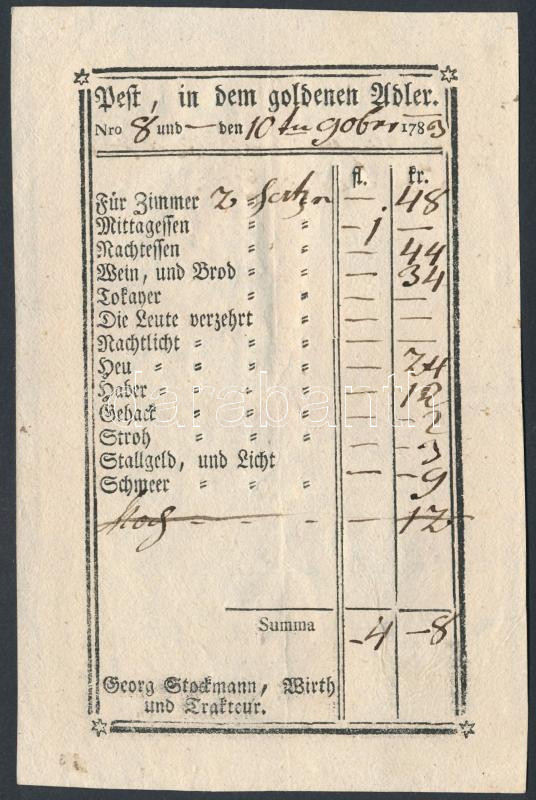 Pest, in dem goldenen Adler.
Nro 8 und — den 10ten 9ober 1783
fl. kr.
Für Zimmer 2 — 48
Mittagessen " " 1 —
Nachtessen " " — 44
Wein, und Brod " " — 34
Tokayer " " — —
Die Leute verzehrt " — —
Nachtlicht " " " — —
Heu " " " " — 24
Haber " " " " — 12
Gehack " " " — 2
Stroh " " " — 3
Stallgeld, und Licht — 9
Schmeer " " "
— 12
Summa 4 8
Georg Stockmann, Wirth
und Trakteur.
darabanth